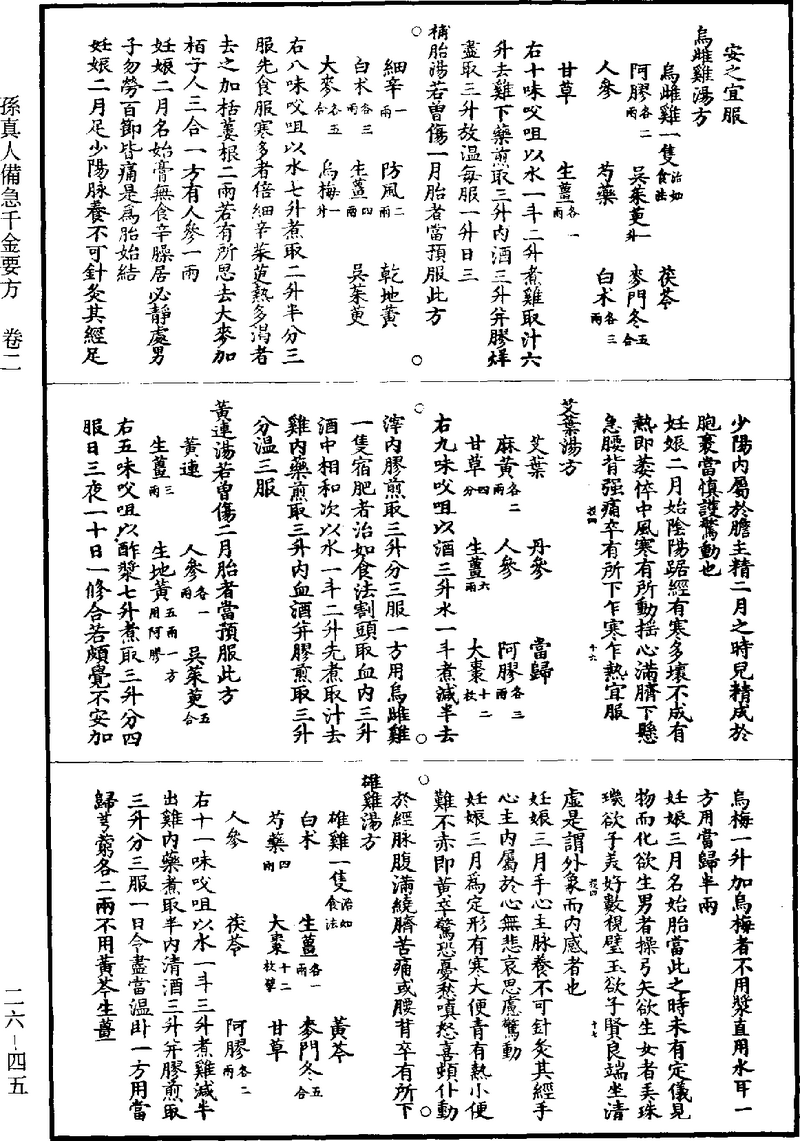 孫真人備急千金要方　卷二
安之宜服
烏雌雞湯方
烏雌雞一隻治如食法　茯苓
阿膠各二兩　吳茱萸一升　麥門冬五合
人參　芍藥　白朮各三兩
甘草　生薑各一兩
右十味㕮咀以水一斗二升煮雞取汁六
升去雞下藥煎取三升內酒三升并膠烊
盡取三升放溫每服一升日三
補胎湯若曾傷一月胎者當預服此方
細辛一兩　防風二兩　乾地黃
白朮各三兩　生薑四兩　吳茱萸
大麥各五合　烏梅一升
右八味㕮咀以水七升煮取二升半分三
服先食服寒多者倍細辛茱萸熱多渴者
去之加栝蔞根二兩若有所思去大麥加
栢子人三合一方有人參一兩
妊娠二月名始膏無食辛臊居必靜處男
子勿勞百節皆痛是爲胎始結
妊娠二月足少陽脉養不可針灸其經足
少陽內屬於膽主精二月之時兒精成於
胞裹當慎護驚動也
妊娠二月始陰陽踞經有寒多壞不成有
熱即萎悴中風寒有所動搖心滿臍下懸
急腰背强痛卒有所下乍寒乍熱宜服
艾葉湯方
艾葉　丹參　當歸
麻黃各二兩　人參　阿膠各三兩
甘草四分　生薑六兩　大棗十二枚
右九味㕮咀以酒三升水一斗煮減半去
滓內膠煎取三升分三服一方用烏雌雞
一隻宿肥者治如食法割頭取血內三升
酒中相和次以水一斗二升先煮取汁去
雞內藥煎取三升內血酒并膠煎取三升
分溫三服
黃連湯若曾傷二月胎者當預服此方
黃連　人參各一兩　吳茱萸五合
生薑三兩　生地黃五兩一方用阿膠
右五味㕮咀以酢漿七升煮取三升分四
服日三夜一十日一修合若頗覺不安加
烏梅一升加烏梅者不用漿直用水耳一
方用當歸半兩
妊娠三月名始胎當此之時未有定儀見
物而化欲生男者操弓矢欲生女者弄珠
璣欲子美好數視璧玉欲子賢良端坐清
虛是謂外象而內感者也
妊娠三月手心主脉養不可針灸其經手
心主內屬於心無悲哀思慮驚動
妊娠三月爲定形有寒大便青有熱小便
難不赤即黃卒驚恐憂愁嗔怒喜頓仆動
於經脉腹滿繞臍苦痛或腰背卒有所下
雄雞湯方
雄雞一隻治如食法　黃芩
白朮　生薑各一兩　麥門冬五合
芍藥四兩　大棗十二枚擘　甘草
人參　茯苓　阿膠各二兩
右十一味㕮咀以水一斗三升煮雞減半
出雞內藥煮取半內清酒三升并膠煎取
三升分三服一日令盡當溫卧一方用當
歸芎藭各二兩不用黃芩生薑
二六－四五